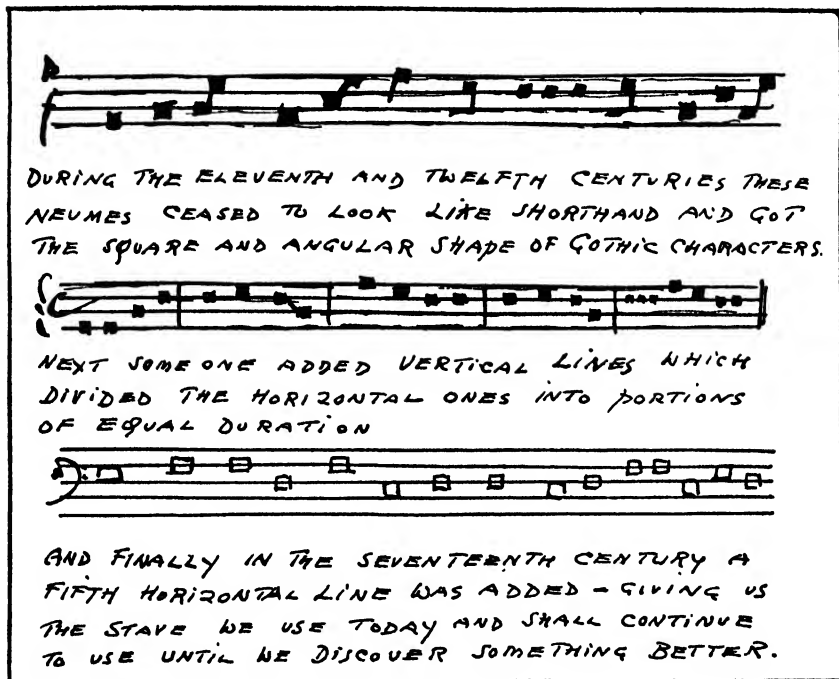 DURING THE ELEVENTH AND TWELFTH CENTURIES THESE
NEUMES CEASED TO LOOK LIKE SHORTHAND AND GOT
THE SQUARE AND ANGULAR SHAPE OF GOTHIC CHARACTERS.
NEXT SOMEONE ADDED VERTICAL LINES WHICH
DIVIDED THE HORIZONTAL ONES INTO PORTIONS
OF EQUAL DURATION
AND FINALLY IN THE SEVENTEENTH CENTURY A
FIFTH HORIZONTAL LINE WAS ADDED – GIVING US
THE STAVE WE USE TODAY AND SHALL CONTINUE
TO USE UNTIL WE DISCOVER SOMETHING BETTER.